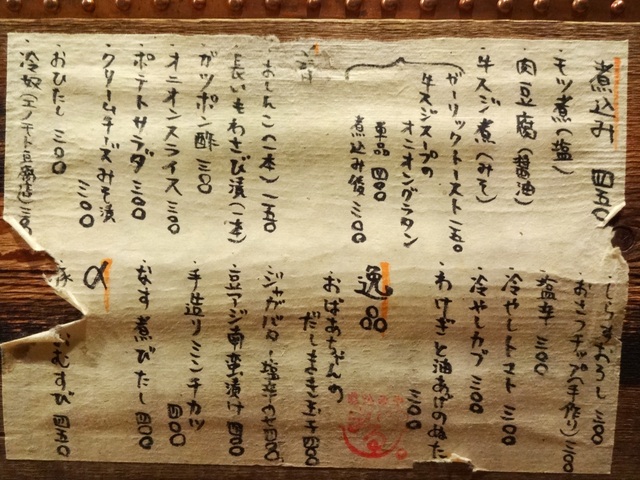 煮込み 四五〇
・モツ煮(塩)
・肉豆腐(醤油)
・牛スジ煮(みそ)
ガーリックトースト 一五〇
牛スジスープの
オニオングラタン
単品 四〇〇
煮込み後 三〇〇
・おしんこ(一本) 一五〇
・長いもわさび漬(一本)
・ガツポン酢 三〇〇
・オニオンスライス 三〇〇
・ポテトサラダ 三〇〇
・クリームチーズみそ漬
三〇〇
・おひたし 三〇〇
・冷奴(エノモト豆腐店) 三〇〇
・しらすおろし 三〇〇
・おさつチップ(手作り) 三〇〇
・塩辛 三〇〇
・冷やしトマト 三〇〇
・冷やしカブ 三〇〇
・わけぎと油あげのぬた
三〇〇
逸品
・おばあちゃんの
だしまき玉子 四〇〇
・ジャガバタ・塩辛のせ 四〇〇
・豆アジ南蛮漬け 四〇〇
・手造りミンチカツ
四〇〇
・なす煮びたし 四〇〇
〆
おむすび 四五〇